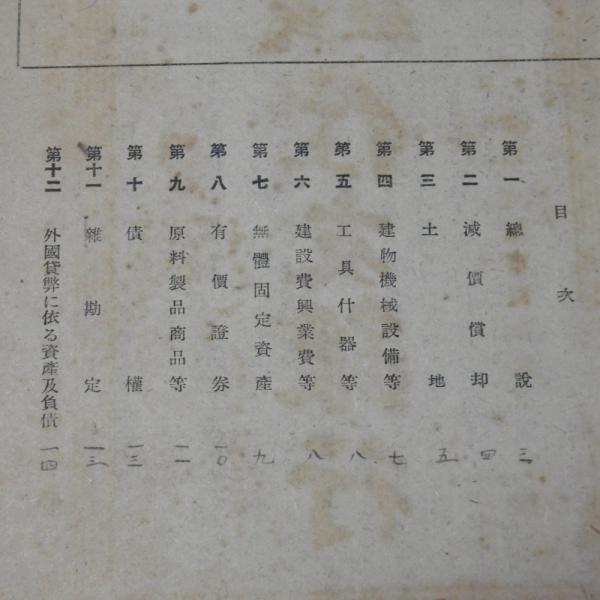 目次
第一 總說 三
第二 減價償却 四
第三 土地 五
第四 建物機械設備等 七
第五 工具什器等 八
第六 建設費興業費等 八
第七 無體固定資產 九
第八 有價證券 一〇
第九 原料製品商品等 一一
第十 債權 一三
第十一 雜勘定 一三
第十二 外國貨幣に依る資產及負債 一四